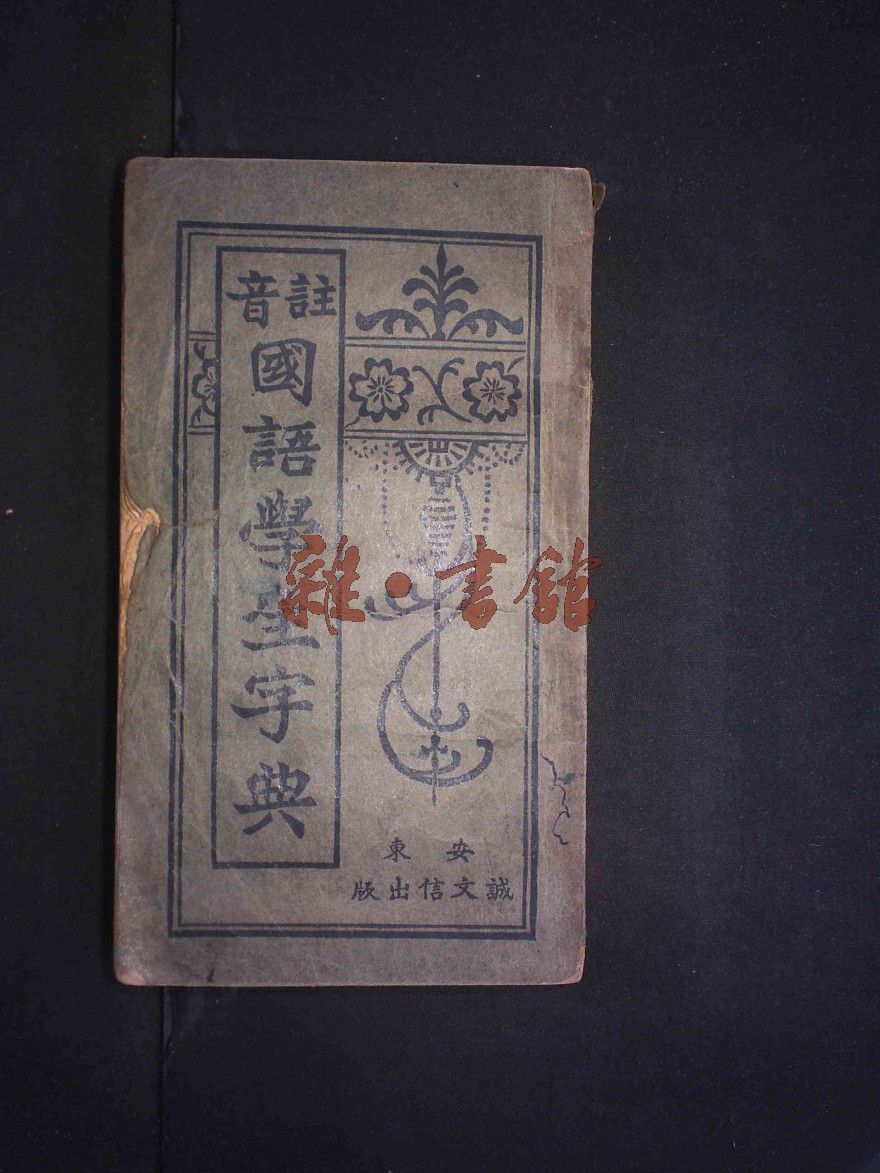 註音
國語學生字典
安東
誠文信出版
雜·書館